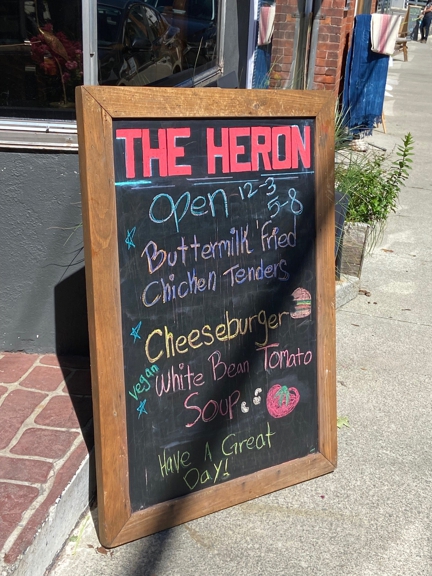 THE HERON
Open 12-3
5-8
Buttermilk Fried
Chicken Tenders
Cheeseburger
vegan
White Bean Tomato
Soup
Have A Great
Day!